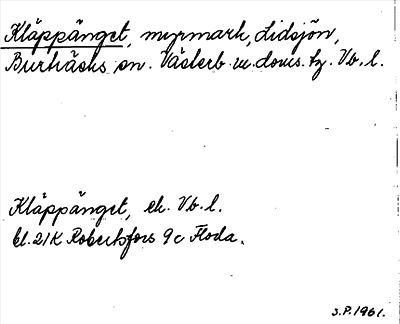 Kläppänget, myrmark, Lidsjön,
Burträsks sn. Västerb. m. doms. tg. Vb. l.
Kläppänget, ek. Vb. l.
bl. 21 K Robertsfors 9 c Floda.
S.P. 1961.